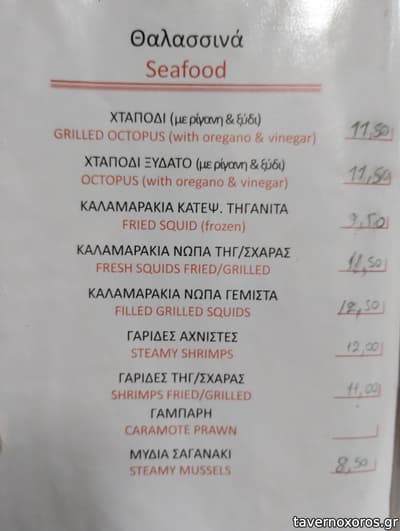 Θαλασσινά
Seafood
ΧΤΑΠΟΔΙ (με ρίγανη & ξύδι)
GRILLED OCTOPUS (with oregano & vinegar) 11,50
ΧΤΑΠΟΔΙ ΞΥΔΑΤΟ (με ρίγανη & ξύδι)
OCTOPUS (with oregano & vinegar) 11,50
ΚΑΛΑΜΑΡΑΚΙΑ ΚΑΤΕΨ. ΤΗΓΑΝΙΤΑ
FRIED SQUID (frozen) 9,50
ΚΑΛΑΜΑΡΑΚΙΑ ΝΩΠΑ ΤΗΓ/ΣΧΑΡΑΣ
FRESH SQUIDS FRIED/GRILLED
ΚΑΛΑΜΑΡΑΚΙΑ ΝΩΠΑ ΓΕΜΙΣΤΑ
FILLED GRILLED SQUIDS
ΓΑΡΙΔΕΣ ΑΧΝΙΣΤΕΣ
STEAMY SHRIMPS 12,00
ΓΑΡΙΔΕΣ ΤΗΓ/ΣΧΑΡΑΣ
SHRIMPS FRIED/GRILLED 11,00
ΓΑΜΠΑΡΗ
CARAMOTE PRAWN
ΜΥΔΙΑ ΣΑΓΑΝΑΚΙ
STEAMY MUSSELS 8,50
tavernoxoros.gr